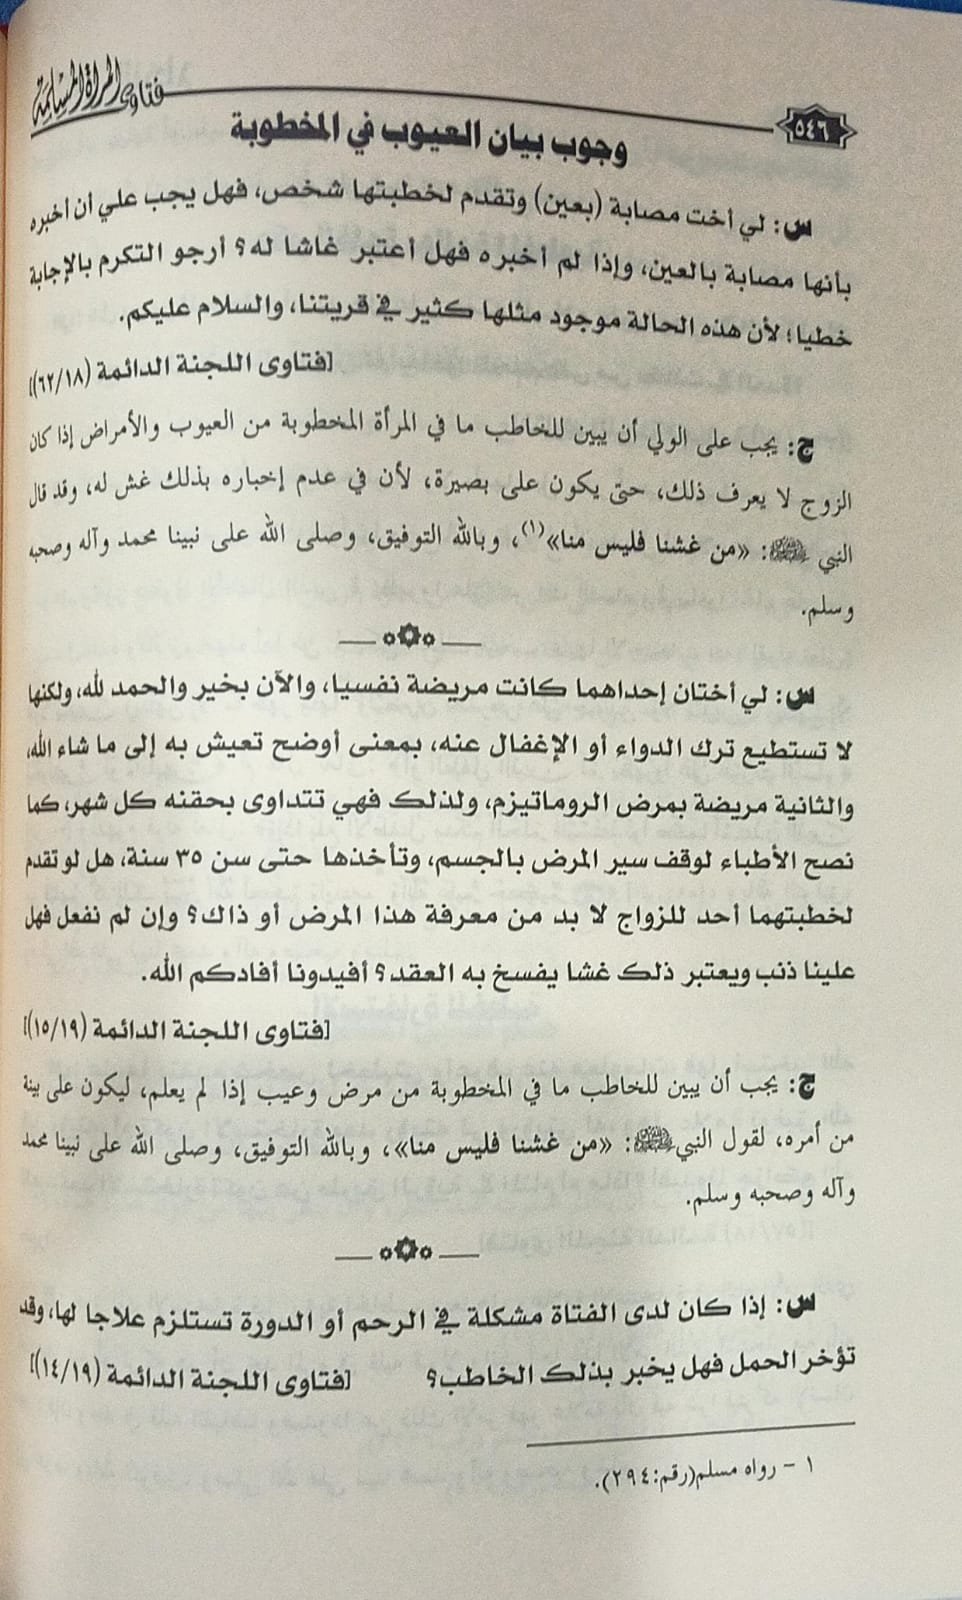 فتاوى المرأة المسلمة
٥٤٦
وجوب بيان العيوب في المخطوبة
س: لي أخت مصابة (بعين) وتقدم لخطبتها شخص، فهل يجب علي أن أخبره
بأنها مصابة بالعين، وإذا لم أخبره فهل أعتبر غاشا له؟ أرجو التكرم بالإجابة
خطيا؛ لأن هذه الحالة موجود مثلها كثير في قريتنا، والسلام عليكم.
[فتاوى اللجنة الدائمة (٦٢/١٨)]
ج: يجب على الولي أن يبين للخاطب ما في المرأة المخطوبة من العيوب والأمراض إذا كان
الزوج لا يعرف ذلك، حتى يكون على بصيرة، لأن في عدم إخباره بذلك غش له، وقد قال
النبي ﷺ: «من غشنا فليس منا»(١)، وبالله التوفيق، وصلى الله على نبينا محمد وآله وصحبه
وسلم.
س: لي أختان إحداهما كانت مريضة نفسيا، والآن بخير والحمد لله، ولكنها
لا تستطيع ترك الدواء أو الإغفال عنه، بمعنى أوضح تعيش به إلى ما شاء الله،
والثانية مريضة بمرض الروماتيزم، ولذلك فهي تتداوى بحقنه كل شهر، كما
نصح الأطباء لوقف سير المرض بالجسم، وتأخذها حتى سن ٣٥ سنة، هل لو تقدم
لخطبتهما أحد للزواج لا بد من معرفة هذا المرض أو ذاك؟ وإن لم نفعل فهل
علينا ذنب ويعتبر ذلك غشا يفسخ به العقد؟ أفيدونا أفادكم الله.
[فتاوى اللجنة الدائمة (١٥/١٩)]
ج: يجب أن يبين للخاطب ما في المخطوبة من مرض وعيب إذا لم يعلم، ليكون على بينة
من أمره، لقول النبي ﷺ: «من غشنا فليس منا»، وبالله التوفيق، وصلى الله على نبينا محمد
وآله وصحبه وسلم.
س: إذا كان لدى الفتاة مشكلة في الرحم أو الدورة تستلزم علاجا لها، وقد
تؤخر الحمل فهل يخبر بذلك الخاطب؟ [فتاوى اللجنة الدائمة (١٤/١٩)]
١ - رواه مسلم(رقم:٢٩٤).